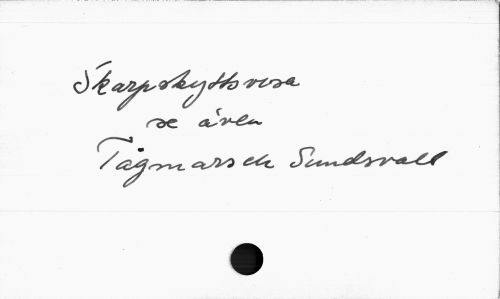 Skarpskyttsvisa
se även
Tågmarsch Sundsvall